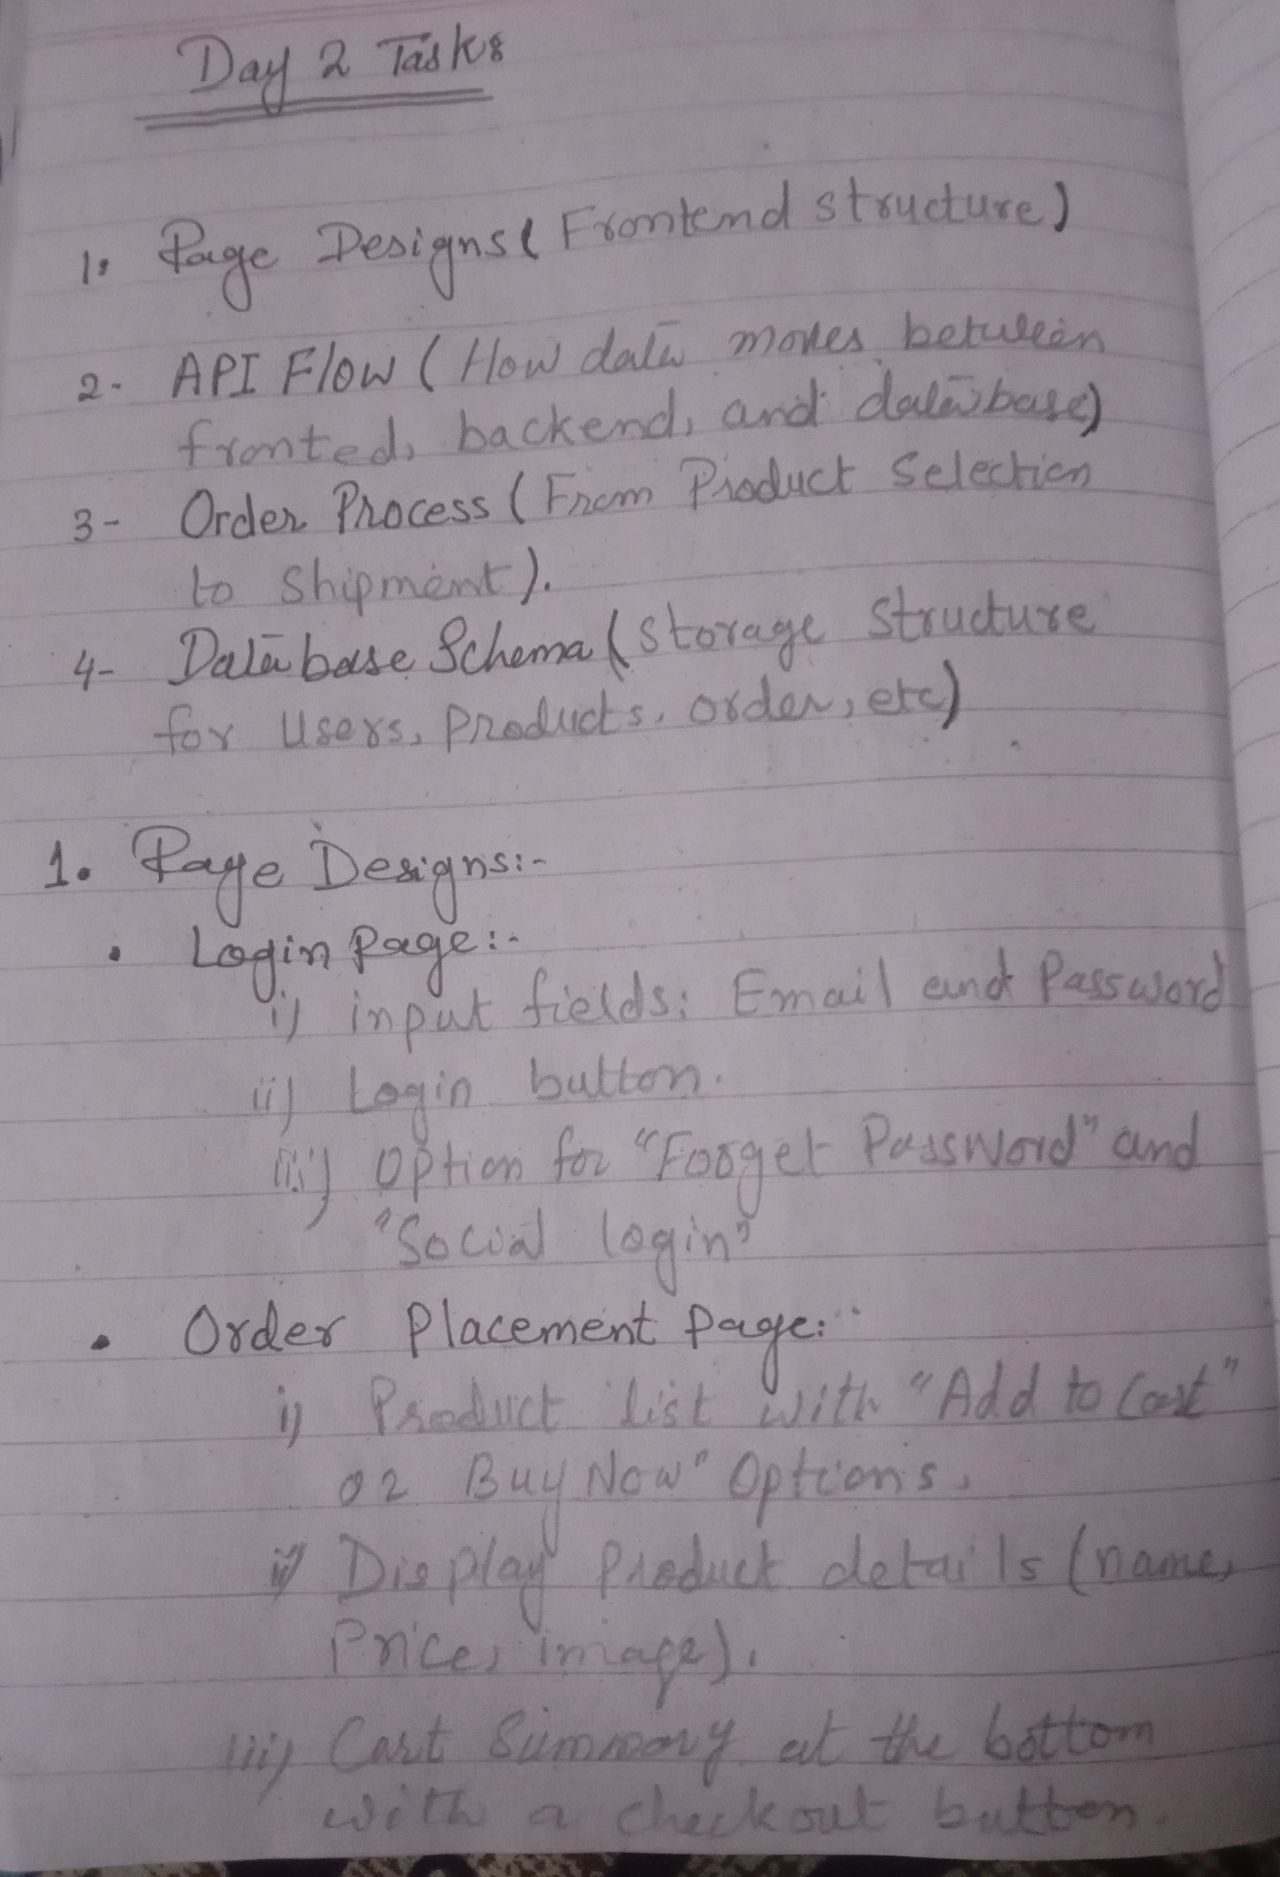 Day 2 Tasks
1. Page Designs ( Frontend structure)
2- API Flow ( How data moves between
fronted, backend, and database)
3- Order Process ( From Product Selection
to Shipment).
4- Database Schema ( Storage Structure
for Users, Products, order, etc)
1. Page Designs:-
• Login Page:-
i) input fields: Email and Password
ii) Login button.
iii) Option for "Forget Password" and
"Social login"
• Order Placement Page:-
i) Product list with "Add to Cart"
or Buy Now" Options.
ii) Display Product details (name,
Price, image).
iii) Cart Summary at the bottom
with a checkout button.